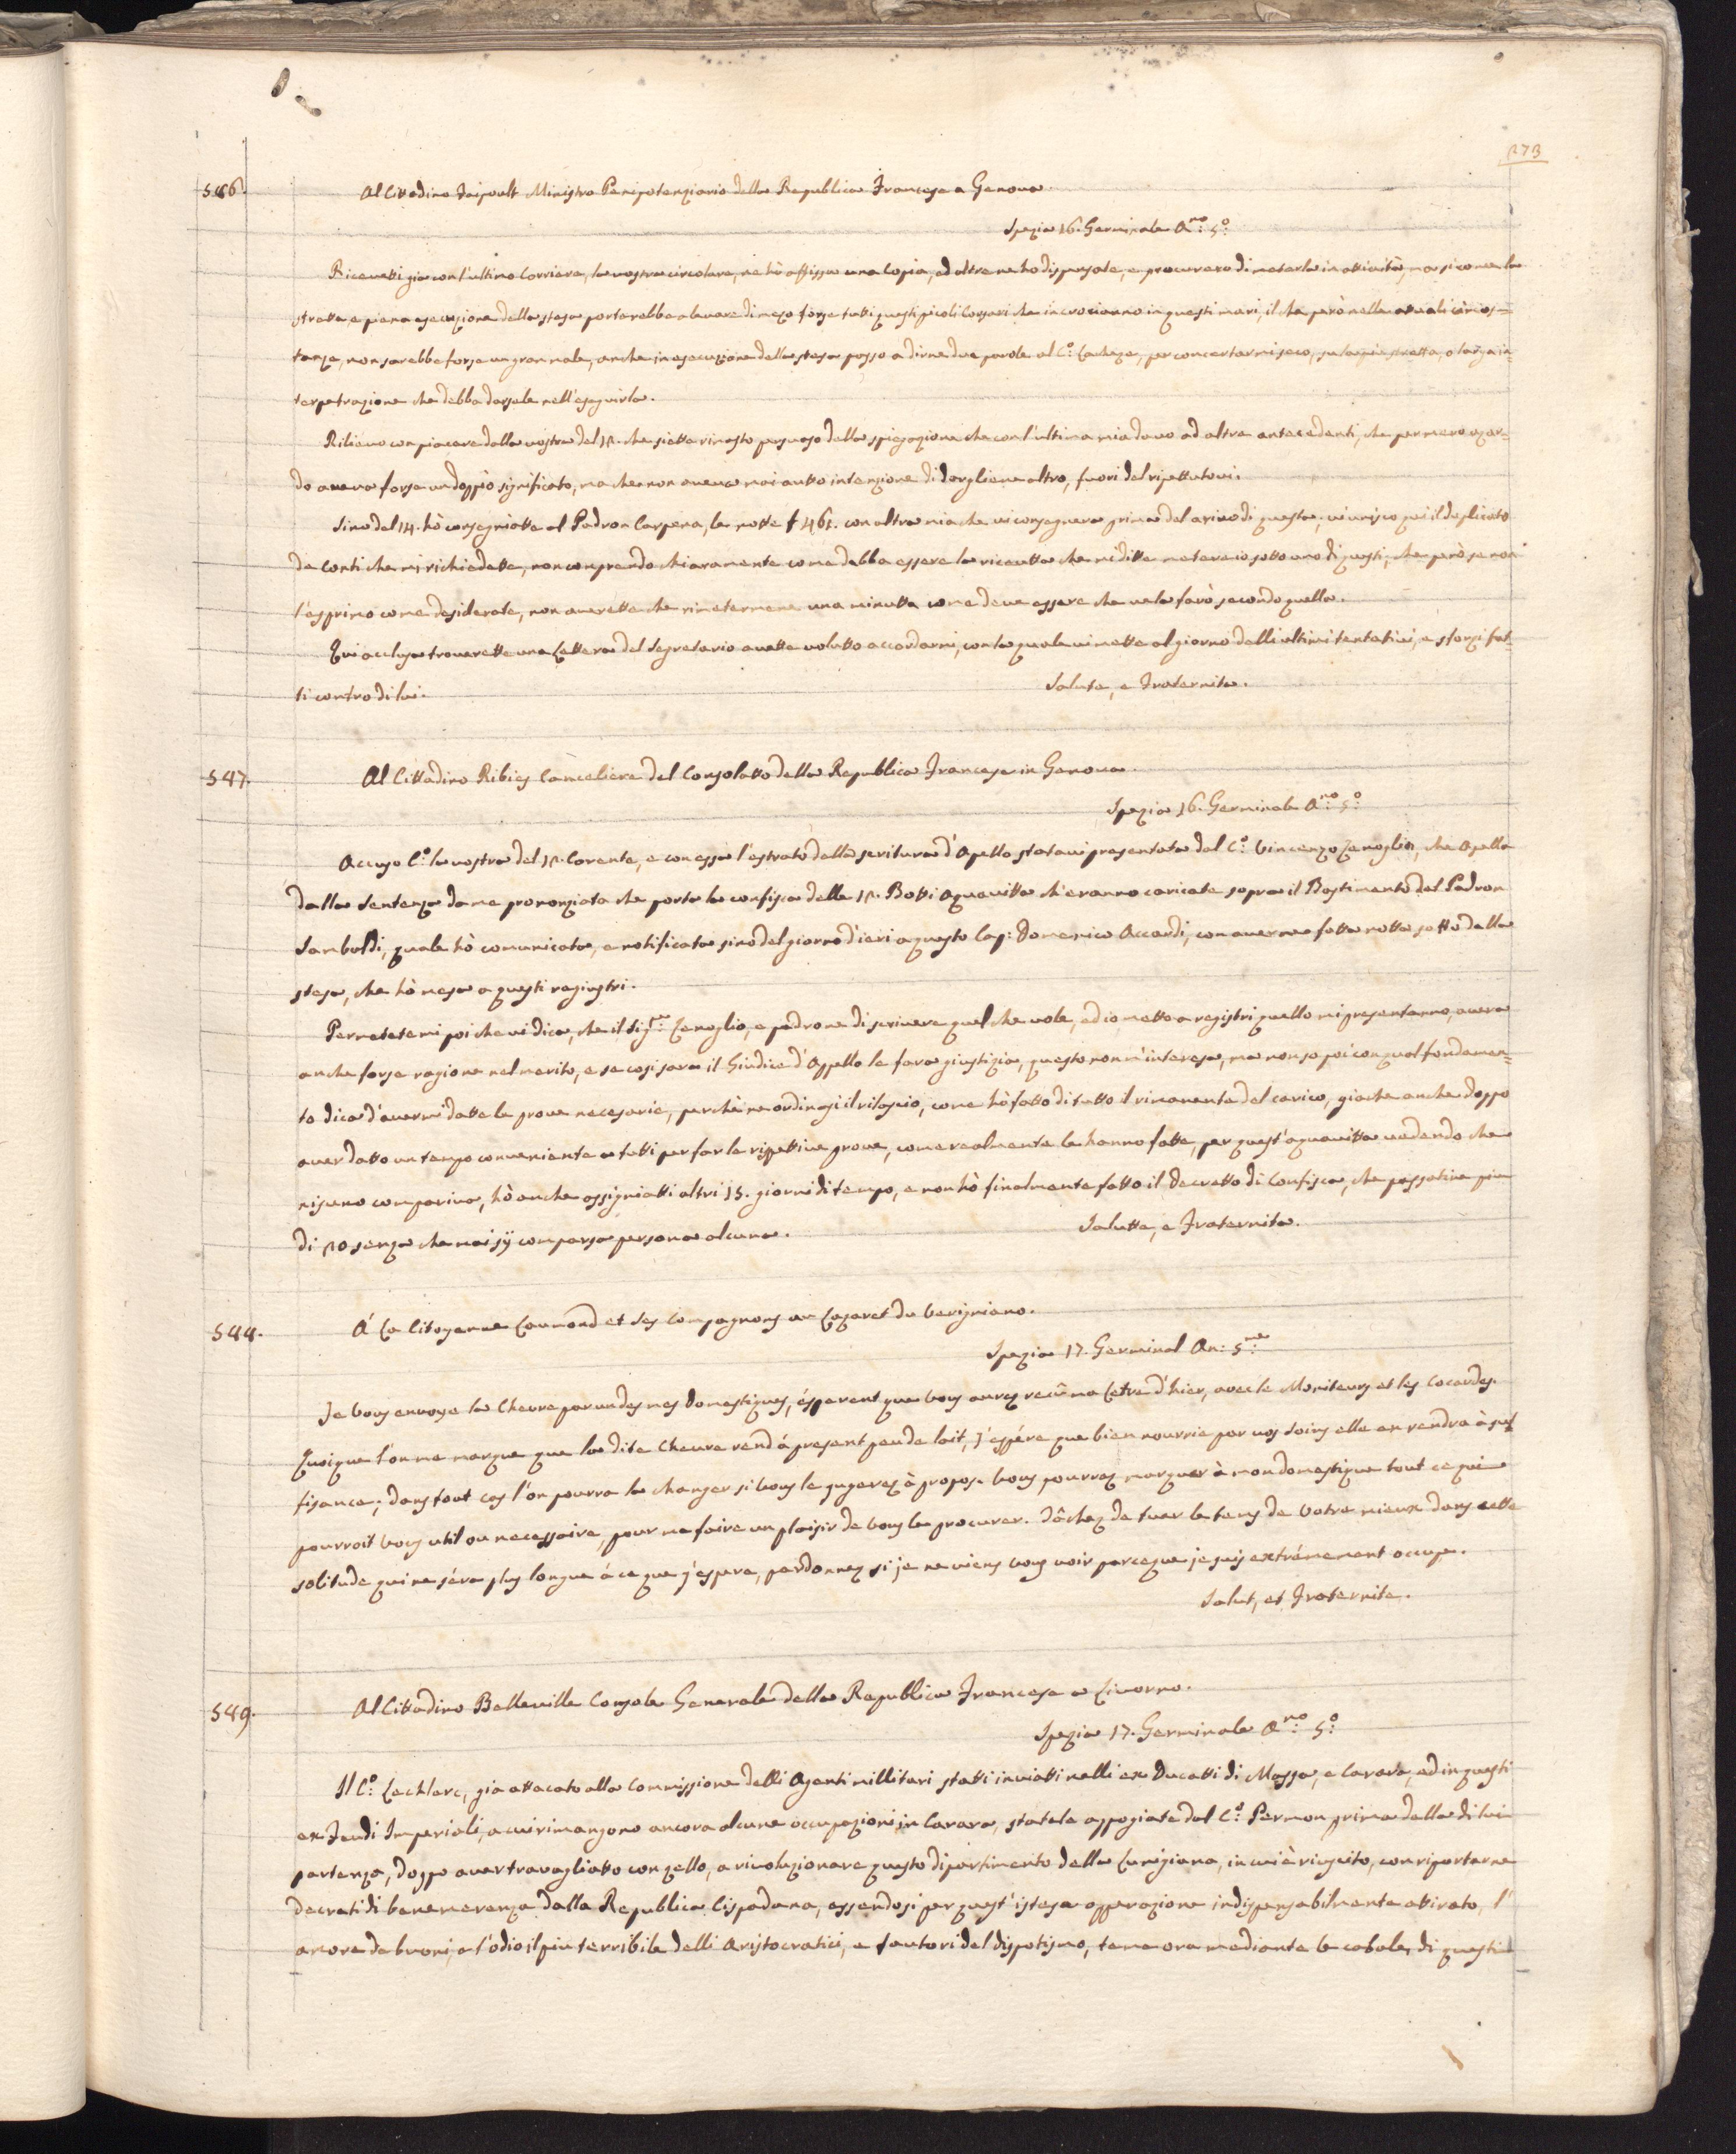 273
546. Al Cittadino Faipoult Ministro Penipotenziario della Republica Francese a Genova.
Spezia 16. Germinale A.no 5.o
Ricevetti gia con l'ultimo Corriere, la vostra circolare, ne hò affissa una Copia, ed altre ne ho dispensate, e procurero di meterla in attività, ma si come la
stretta, e piena esecuzione della stesa porterebbe a levare di mezo forse tutti questi picoli Corsari che incrocianno in questi mari, il che però nelle attuali circos=
tanze, non sarebbe forse un gran male, anche in esecuzione della stesa passo a dirne due parole al C.o Lacheze, per concertarmi seco, su la piu stretta, o larga in=
terpetrazione che debba darsele nell'eseguirla.
Rilievo con piacere dalla vostra del 12. che siette rimasto persuaso della spiegazione che con l'ultima mia davo ad altre antecedenti, che per mero azar=
do aveva forse un doppio significato, ma che non aveva mai autto intenzione di dargliene altro, fuori del rispettatovi.
Sino dal 14. hò consegniatto al Padron Carpena, le notte £ 461. con altra mia che vi consegnera prima del arivo di questa; vi unisco qui il duplicato
de conti che mi richiedette, non comprendo chiaramente come debba essere la ricevutta che mi ditte metere io sotto uno di questi; che però se non
l'esprimo come desiderate, non averette che rimetermene una minutta come deve essere che ve la farò secondo quella.
Qui acclusa troverette una Lettera del Segretario avette volutto accordarmi, con la quale vi mette al giorno delli ultimi tentativi, e sforzi fat=
ti contro di lui. Salute, e Fraternita.
547. Al Cittadino Ribies Canceliere del Consolatto della Republica Francese in Genova.
Spezia 16. Germinale A.no 5.o
Accuso C.o la vostra del 12. Corente, e con essa l'estrato della scritura d'Apello statavi presentata dal C.o Vincenzo Zenoglio, che Apella
dalla Sentenza da me prononziata che porta la confisca delle 12. Botti Aquavitta ch'eranno caricate sopra il Bastimento del Padron
Sambuldi, quale hò comunicata, e notificata sino dal giorno d'ieri a questo Cap: Domenico Accardi, con averne fatta notta sotto della
stesa, che hò mesa a questi reginstri.
Permetetemi poi che vi dica, che il Sig.re Zenoglio, e padrone di scrivere quel che vole, ed io metto a registri quello mi presentanno, avera
anche forse ragione nel merito, e se cosi sara il Giudice d'Appello le fara giustizia, questo non m'interesa, ma non so poi con qual fondamen=
to dica d'avermi datte le prove necesarie, perchè ne ordinasi il rilascio, come hò fatto di tutto il rimanente del carico, giache anche doppo
aver datto un tempo conveniente a tutti per far le rispettive prove, come realmente le hanno fatte, per quest'aquavitta vedendo che
nisuno compariva, hò anche assigniatti altri 15. giorni di tempo, e non hò finalmente fatto il Decretto di Confisca, che passatine piu
di 20 senza che mai sÿ comparsa persona alcuna. Salutte, e Fraternita.
548. A La Citoyenne Laumond et Ses Compagnons au Lazaret du Varigniano.
Spezia 17. Germinal An: 5.me
Je vous envoye la Chevre par un des mes Domestiques, ésperent que vous aurez recû ma Letre d'hier, avec le Moniteurs et les Cocardes.
Quoique l'on me marque que la dite Chevre rend á present peu de lait, j'espére que bien nourrie par vos Soins elle en rendra à suf
fisance; dans tout cas l'on pourra la changer si vous le jugerez à propos. Vous pourrez marquer à mon domestique tout ce qui
pourroit vous util ou necessaire, pour me faire un plaisir de vous le procurer. Tâchez de tuer le tems de Votre mieux dans cette
solitude qui ne séra plus longue à ce que j'espere, pardonnez si je ne viens vous voir parceque je suis extrémement occupe.
Salut, et Fraternite.
549. Al Cittadino Belleville Console Generale della Republica Francese a Livorno.
Spezia 17. Germinale A.no 5.o
Il C.o Lechlerc, gia attacato alla Commissione delli Agenti millitari statti inviatti nelli ex Ducatti di Massa, e Carara, ed in questi
ex Feudi Imperiali, a cui rimangono ancora alcune occupazioni in Carara, statele appogiate dal C.o Permon prima della di lui
partenza, doppo aver travagliatto con zello, a rivoluzionare questo dipartimento della Lunigiana, in cui è riuscito, con riportarne
decreti di benemerenza dalla Republica Cispadana, essendosi per quest'istesa opperazione indispensabilmente attirato, l'
amore de buoni, e l'odio il piu terribile delli Aristocratici, e fautori del dispotismo, teme ora mediante le cabale, di questi